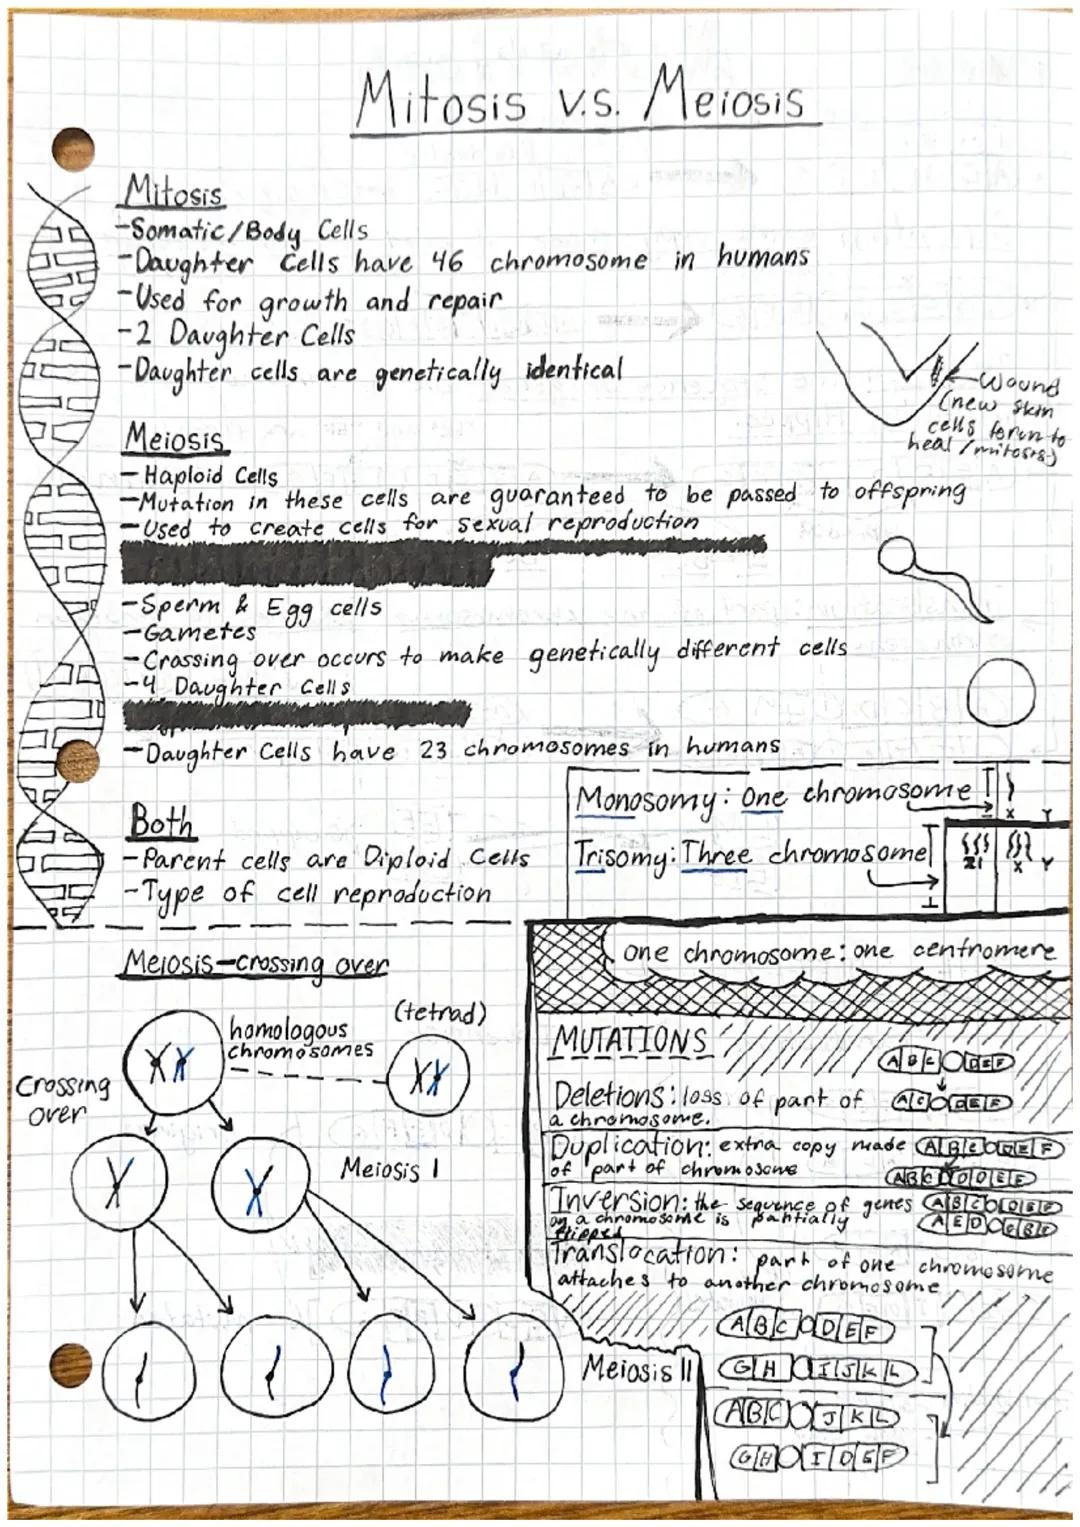 Mitosis v.s. Meiosis
Mitosis
-Somatic/Body Cells
-Daughter Cells have 46 chromosome in humans
-Used for growth and repair
-2 Daughter Cells
-Daughter cells are genetically identical
Wound
(new skin
cells form to
heal/mitosis)
Meiosis
-Haploid Cells
-Mutation in these cells are guaranteed to be passed to offspring
-Used to create cells for sexual reproduction
-Sperm & Egg cells
-Gametes
-Crossing over occurs to make genetically different cells
-4 Daughter Cells
-Daughter Cells have 23 chromosomes in humans
Monosomy: One chromosome
X Y
Trisomy: Three chromosome
21 X Y
Both
-Parent cells are Diploid Cells
-Type of cell reproduction
one chromosome: one centromere
Meiosis-crossing over
homologous
chromosomes
(tetrad)
Crossing
over
Meiosis I
Meiosis II
MUTATIONS
A B C D E F
Deletions: loss of part of
a chromosome.
A C D E F
Duplication: extra copy made
of part of chromosome
A B C D E F
A B C D D E F
Inversion: the sequence of genes
on a chromosome is partially
flipped
A B C D E F
A E D C B F
Translocation: part of one chromosome
attaches to another chromosome
A B C D E F
G H I J K L
A B C J K L
G H I D E F